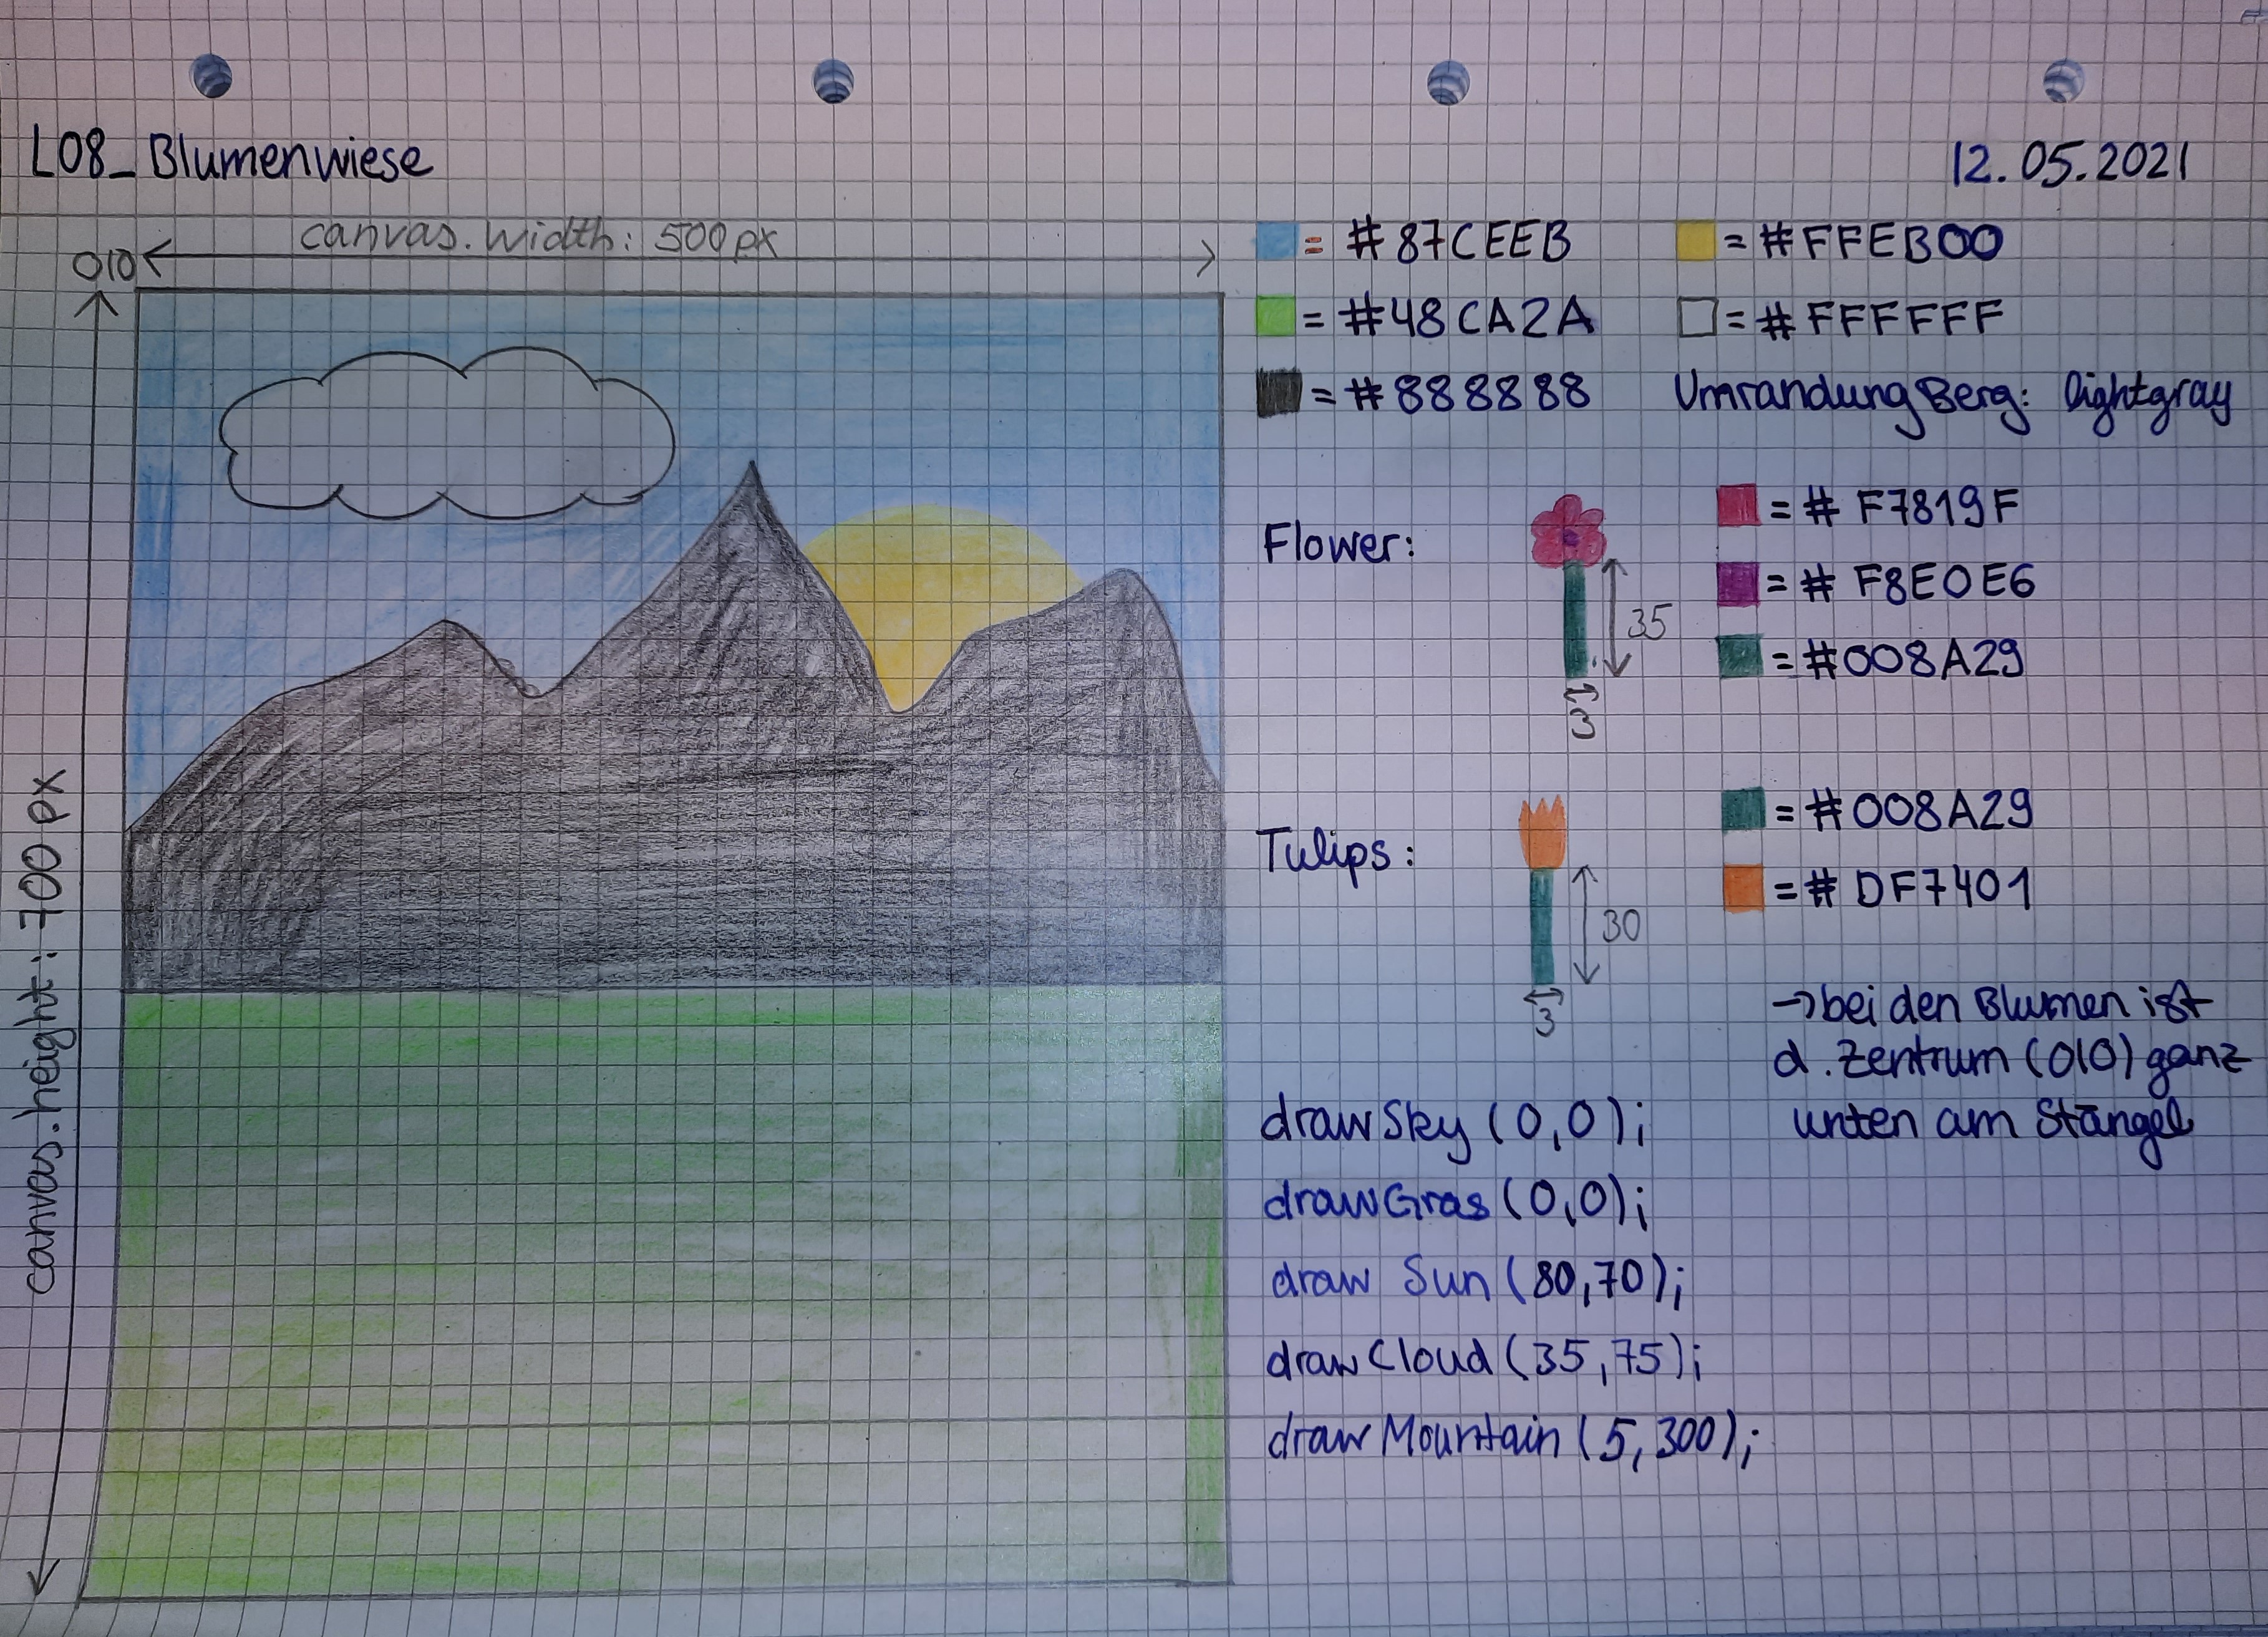 L08_Blumenwiese
12.05.2021
canvas.width: 500px
0|0
canvas.height: 700 px
= #87CEEB
= #FFEB00
= #48CA2A
= #FFFFFF
= #888888
Umrandung Berg: lightgray
Flower:
35
3
= # F7819F
= # F8E0E6
= #008A29
Tulips:
30
3
= #008A29
= # DF7401
→ bei den Blumen ist
d. Zentrum (0|0) ganz
unten am Stängel
drawSky (0,0);
drawGras (0,0);
draw Sun (80,70);
drawCloud (35,75);
drawMountain (5,300);